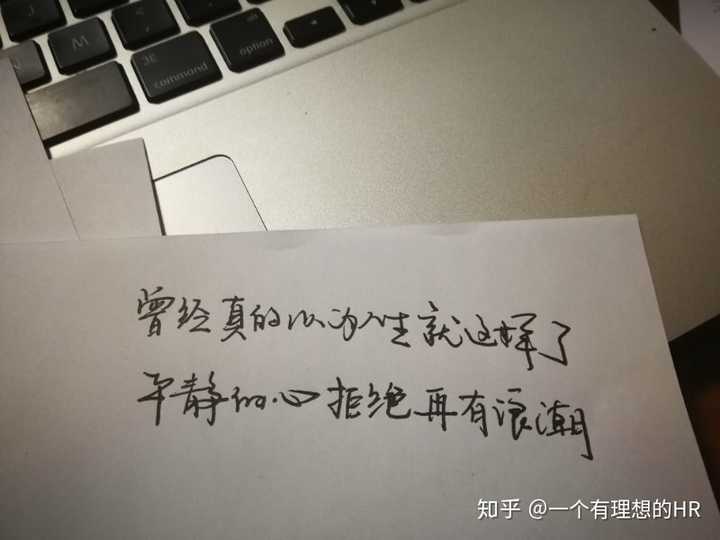 J
N
M
⌘
command
alt
option
曾经真的以为人生就这样了
平静的心拒绝再有浪潮
知乎 @一个有理想的HR